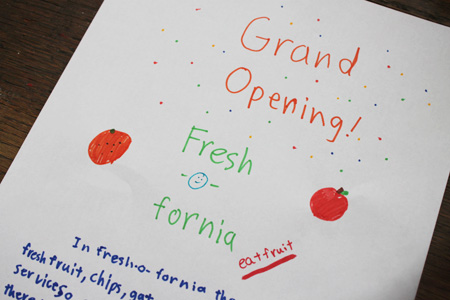 Grand
Opening!
Fresh
-o-
fornia
eatfruit
In Fresh-o-fornia the
fresh fruit, chips, gat
services
there